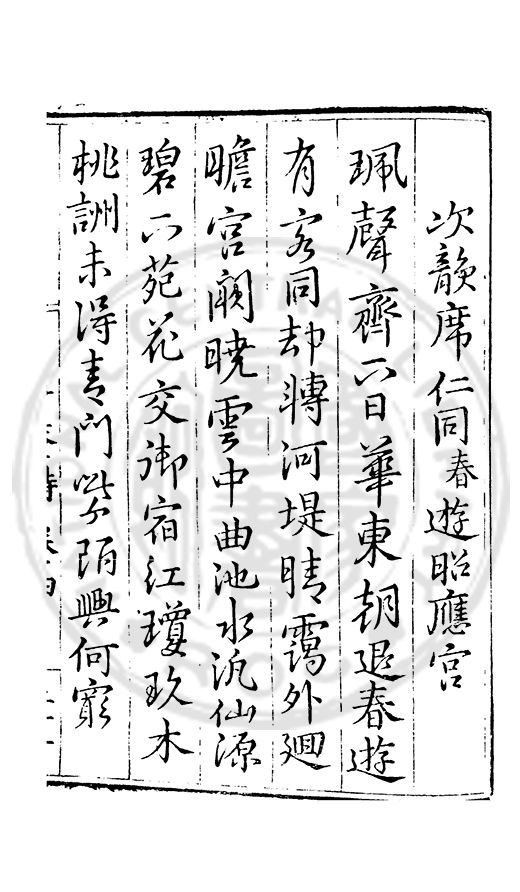 次韻席仁同春遊昭應宮
珮聲齊下日華東朝退春遊
有客同却轉河堤晴靄外廻
瞻宮闕曉雲中曲池水汎仙源
碧下苑花交御宿紅瓊玖木
桃詶未得青門紫陌興何窮